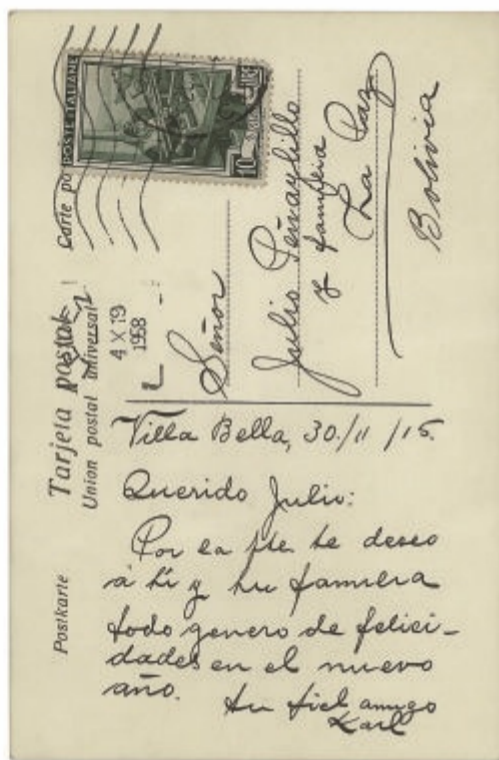 Postkarte
Tarjeta postal
Carte po
Union postal universal
POSTE ITALIANE
10
LIRE
4 X 19
1958
Señor
Julio Peñaylillo
y familia
La Paz
Bolivia
Villa Bella, 30./11/15.
Querido Julio:
Por la pte. te deseo
á ti y tu familia
todo genero de felici-
dades en el nuevo
año.
tu fiel amigo
Karl